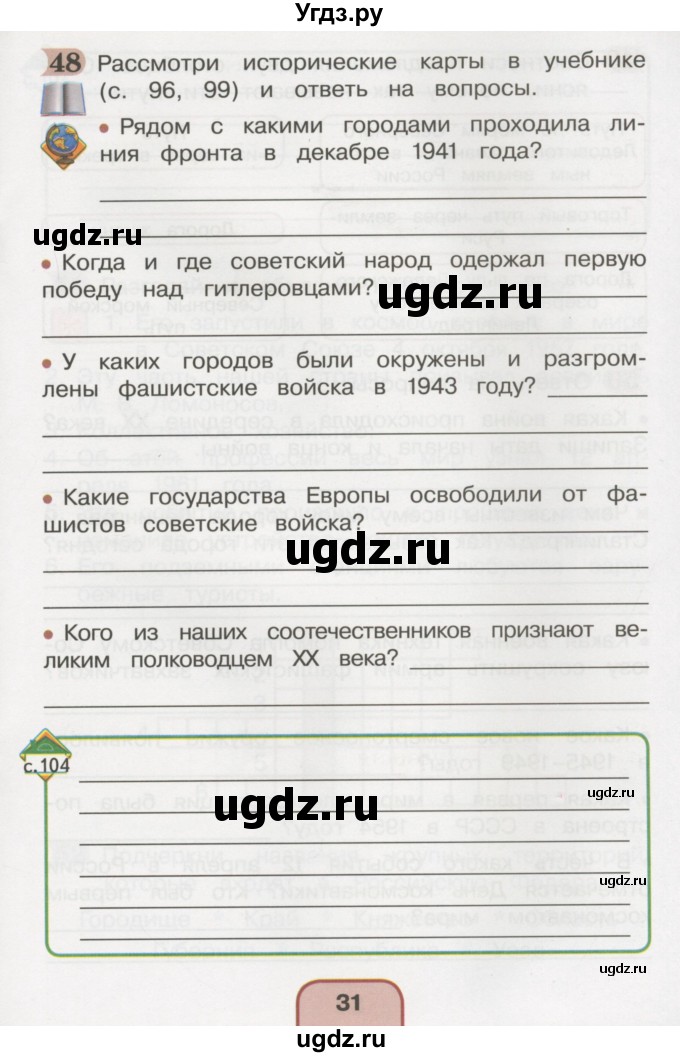 Угдз.ру
48 Рассмотри исторические карты в учебнике
(с. 96, 99) и ответь на вопросы.
• Рядом с какими городами проходила ли-
ния фронта в декабре 1941 года?
ugdz.ru
ugdz.ru
• Когда и где советский народ одержал первую
победу над гитлеровцами?
ugdz.ru
• У каких городов были окружены и разгром-
лены фашистские войска в 1943 году?
• Какие государства Европы освободили от фа-
шистов советские войска?
ugdz.ru
• Кого из наших соотечественников признают ве-
ликим полководцем XX века?
с. 104
ugdz.ru
ugdz.ru
ugdz.ru
31
ugdz.ru